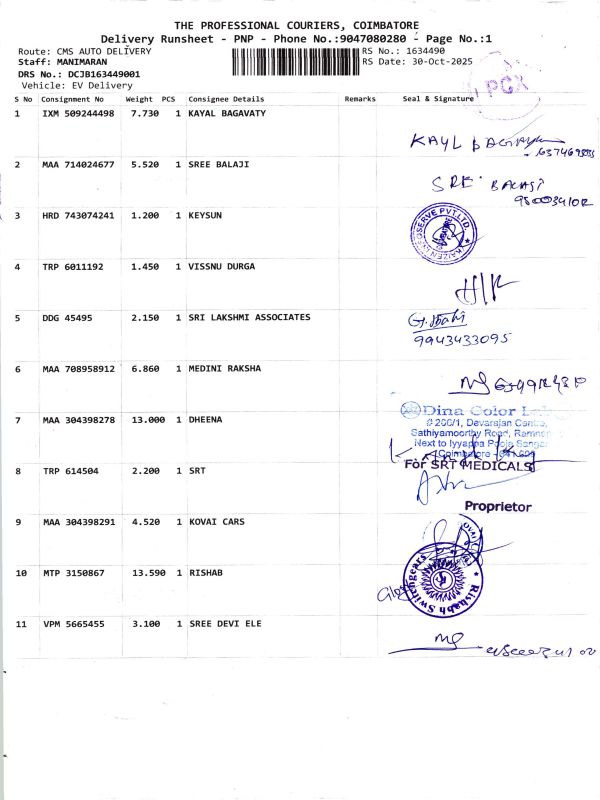 THE PROFESSIONAL COURIERS, COIMBATORE
Delivery Runsheet - PNP - Phone No.:9047080280 - Page No.:1
Route: CMS AUTO DELIVERY
RS No.: 1634490
Staff: MANIMARAN
RS Date: 30-Oct-2025
DRS No.: DCJB163449001
Vehicle: EV Delivery
PCX
S No Consignment No Weight PCS Consignee Details Remarks Seal & Signature
1 IXM 509244498 7.730 1 KAYAL BAGAVATY
KAYL
2 MAA 714024677 5.520 1 SREE BALAJI
SRE BALAJI
3 HRD 743074241 1.200 1 KEYSUN
4 TRP 6011192 1.450 1 VISSNU DURGA
5 DDG 45495 2.150 1 SRI LAKSHMI ASSOCIATES
9943433095
6 MAA 708958912 6.860 1 MEDINI RAKSHA
7 MAA 304398278 13.000 1 DHEENA
Dina Color
# 200/1, Devarajan Centre,
Sathiyamoorthy Road,
Next to Iyyappa Pooja
Coimbatore
8 TRP 614504 2.200 1 SRT
For SRT MEDICALS
Proprietor
9 MAA 304398291 4.520 1 KOVAI CARS
10 MTP 3150867 13.590 1 RISHAB
Rishabh Switchgears
11 VPM 5665455 3.100 1 SREE DEVI ELE